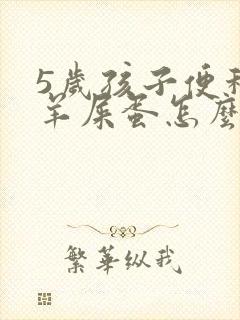 5歲孩子便秘
羊屎蛋怎麼
繁華纵我